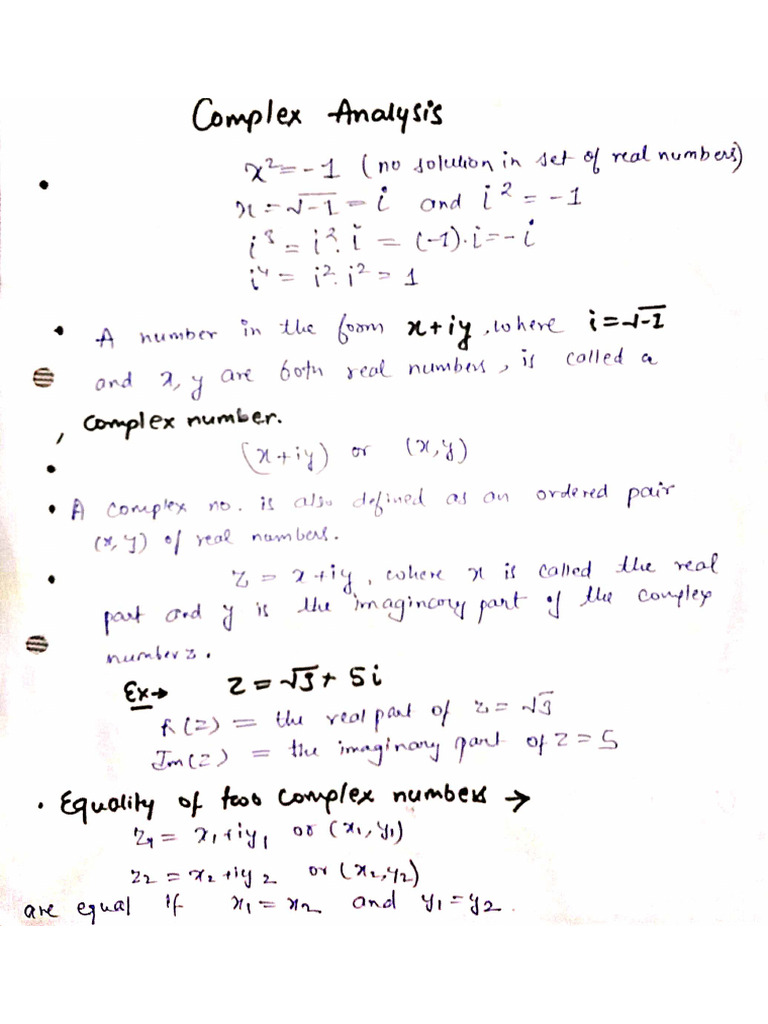 Complex Analysis
• x² = -1 (no solution in set of real numbers)
x = √-1 = i and i² = -1
i³ = i².i = (-1).i = -i
i⁴ = i².i² = 1
• A number in the form x+iy, where i = √-1
and x, y are both real numbers, is called a
complex number.
• (x+iy) or (x,y)
• A complex no. is also defined as an ordered pair
(x, y) of real numbers.
• z = x+iy, where x is called the real
part and y is the imagincory part of the complex
number z.
Ex→ z = √3 + 5i
R(z) = the real part of z = √3
Im(z) = the imaginary part of z = 5
• Equality of two complex numbers →
z₁ = x₁+iy₁ or (x₁, y₁)
z₂ = x₂+iy₂ or (x₂, y₂)
are equal if x₁ = x₂ and y₁ = y₂.